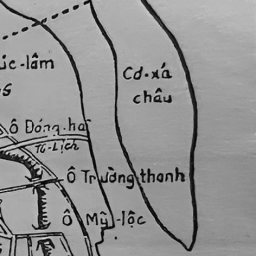 úc-lâm
Cơ-xá
châu
Ô Đông-hà
Tô-Lịch
Ô Trường thanh
Ô Mỹ-lộc